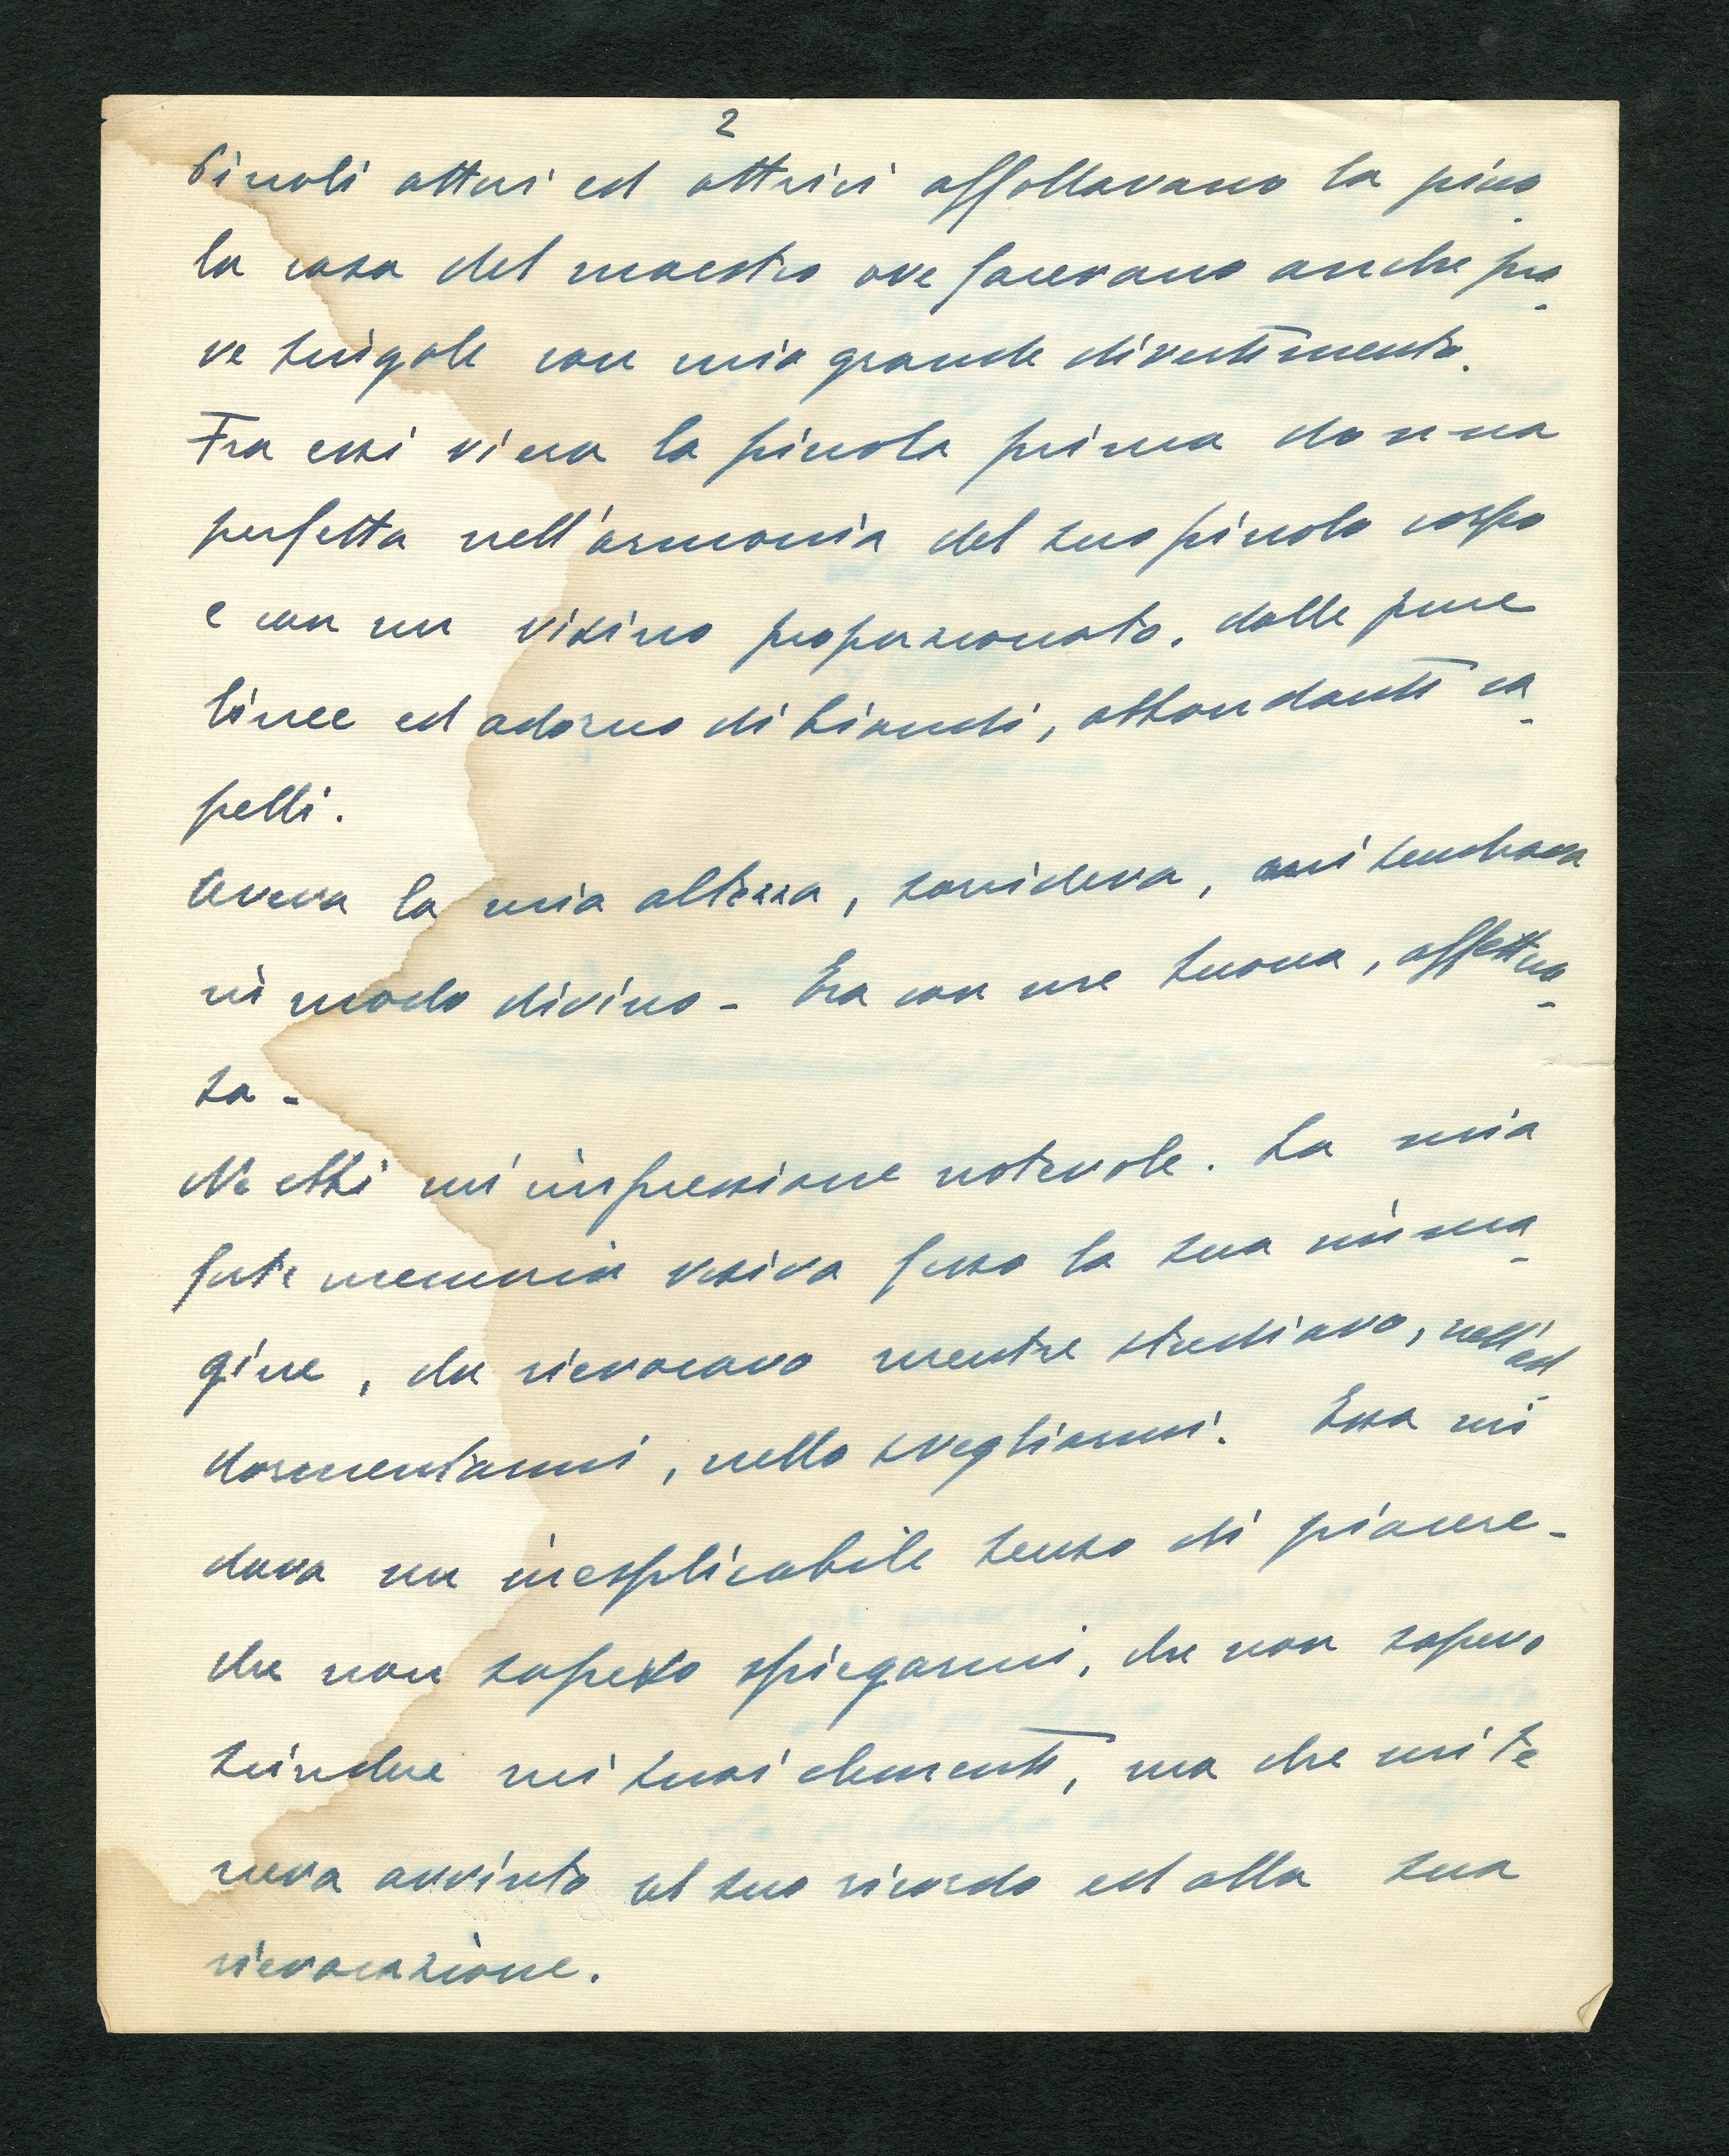 2
Piccoli attori ed attrici affollavano la picco
la casa del maestro ove facevano anche pro-
ve singole con mia grande divertimento.
Fra essi v'era la piccola prima donna
perfetta nell'armonia del suo piccolo corpo
e con un visino proporzionato, dalle pure
linee ed adorno di biondi, abbondanti ca-
pelli.
Aveva la mia altezza, sorrideva, mi sembrava
in modo divino - Era con me buona, affettuo-
sa -
Ne ebbi un'impressione notevole. La mia
forte memoria visiva fissò la sua imma-
gine, che rievocavo mentre studiavo, nell'ad-
dormentarmi, nello svegliarmi. Essa mi
dava un inesplicabile senso di piacere -
che non sapevo spiegarmi, che non sapevo
scindere nei suoi elementi, ma che mi te
neva avvinto al suo ricordo ed alla sua
rievocazione.